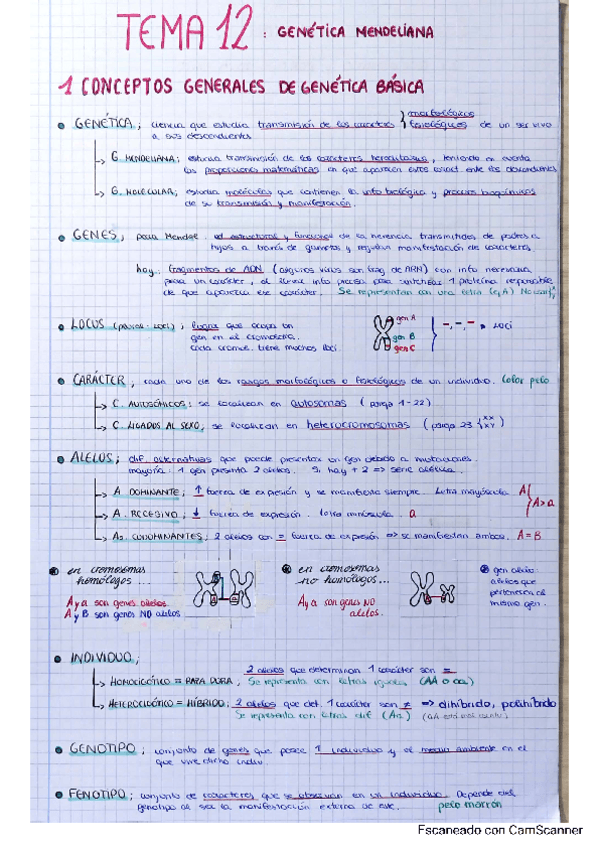 TEMA 12 : GENÉTICA MENDELIANA
1 CONCEPTOS GENERALES DE GENÉTICA BÁSICA
• GENÉTICA; ciencia que estudia transmisión de los caracteres { morfológicos fisiológicos de un ser vivo
a sus descendientes.
↳ G. MENDELIANA; estudia transmisión de los caracteres hereditarios, teniendo en cuenta
las proporciones matemáticas en que aparecen estos caract. entre los descendientes
↳ G. MOLECULAR; estudia moléculas que contienen la info biológica y procesos bioquímicos
de su transmisión y manifestación.
• GENES; para Mendel: ud estructural y funcional de la herencia transmitides de padres a
hijos a través de gametos y regulan manifestación de caracteres.
hoy: fragmentos de ADN (algunos virus son frag de ARN) con info necesaria
para un carácter, al llevar info precisa para sintetizar 1 proteína responsable
de que aparezca ese carácter. Se representan con una letra (a, A)
• LOCUS (plural: loci); lugar que ocupa un
gen en el cromosoma.
cada cromos. tiene muchos loci.
gen A
gen B
gen C
-, -, - loci
• CARÁCTER; cada uno de los rasgos morfológicos o fisiológicos de un individuo. Color pelo
↳ C. AUTOSÓMICOS: se localizan en autosomas (pareja 1-22)
↳ C. LIGADOS AL SEXO; se localizan en heterocromosomas (pareja 23 { XX XY )
• ALELOS; dif. alternativas que puede presentar un gen debido a mutaciones.
mayoría: 1 gen presenta 2 alelos. Si hay + 2 => serie alélica.
↳ A. DOMINANTE; ↑ fuerza de expresión y se manifiesta siempre. Letra mayúscula A
↳ A. RECESIVO; ↓ fuerza de expresión. Letra minúscula. a
} A>a
↳ As. CODOMINANTES; 2 alelos con = fuerza de expresión => se manifiestan ambos. A = B
en cromosomas
homólogos...
A y a son genes alelos.
A y B son genes NO alelos
en cromosomas
no homólogos...
A y a son genes NO
alelos.
gen alelo:
alelos que
pertenecen al
mismo gen.
• INDIVIDUO;
↳ HOMOCIGÓTICO = RAZA PURA; 2 alelos que determinan 1 carácter son =
Se representa con letras iguales (AA o aa)
↳ HETEROCIGÓTICO = HÍBRIDO; 2 alelos que det. 1 carácter son ≠ => dihíbrido, polihíbrido
Se representa con letras dif (Aa)
• GENOTIPO; conjunto de genes que posee 1 individuo y el medio ambiente en el
que vive dicho indiv.
• FENOTIPO; conjunto de caracteres que se observan en un individuo. Depende del
genotipo al ser la manifestación externa de este. pelo marrón
Escaneado con CamScanner